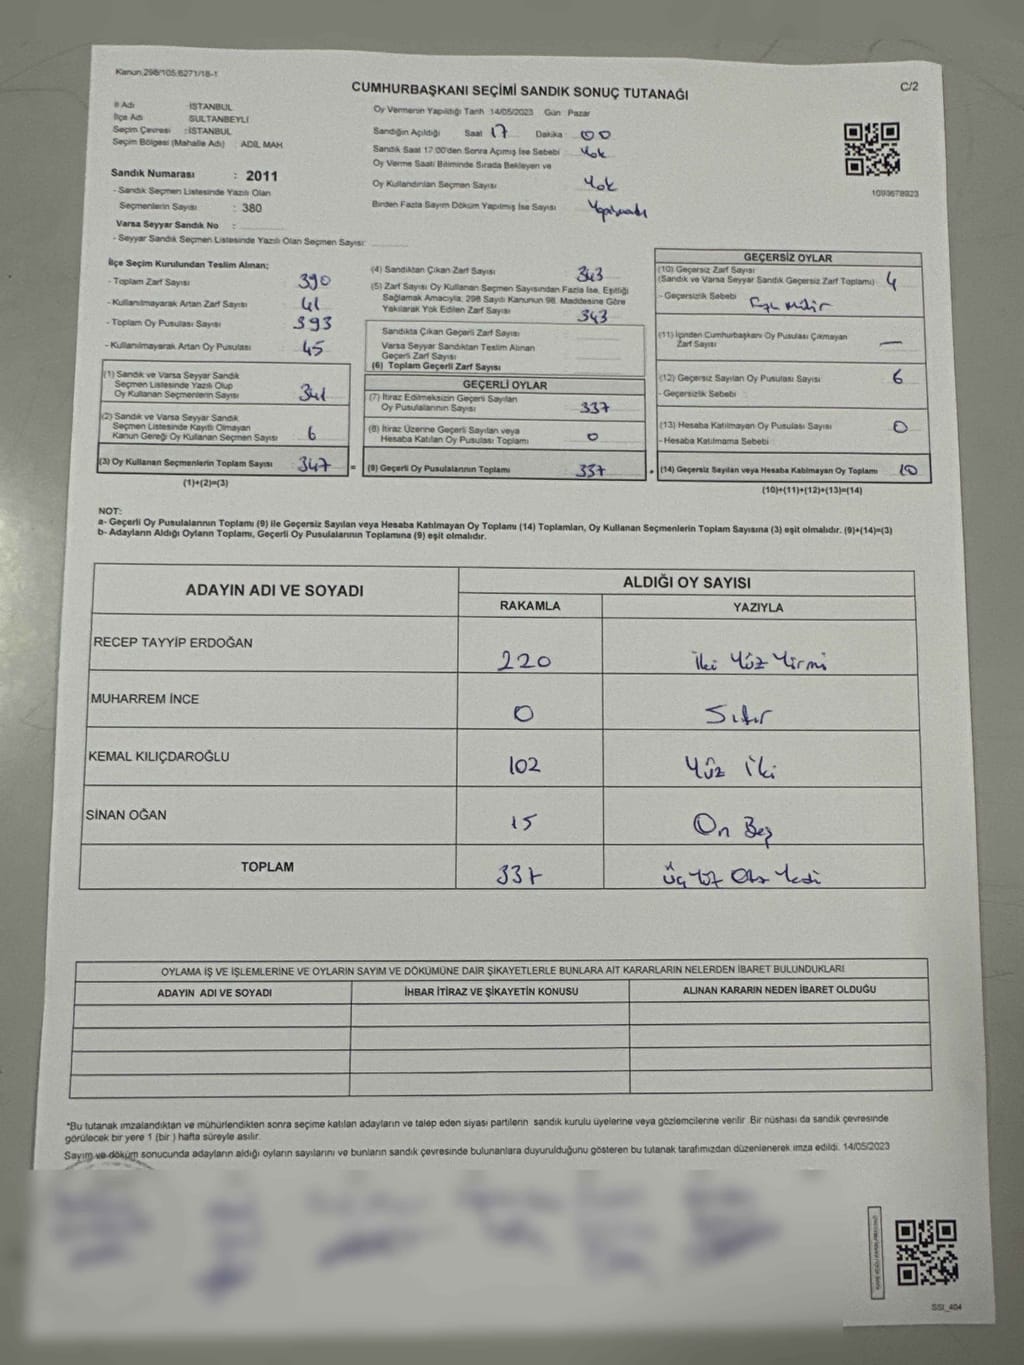 Kanun.298/105.6271/18-1
C/2
CUMHURBAŞKANI SEÇİMİ SANDIK SONUÇ TUTANAĞI
İl Adı :İSTANBUL
İlçe Adı SULTANBEYLİ
Seçim Çevresi :İSTANBUL
Seçim Bölgesi (Mahalle Adı) : ADİL MAH.
Sandık Numarası : 2011
- Sandık Seçmen Listesinde Yazılı Olan
Seçmenlerin Sayısı : 380
Varsa Seyyar Sandık No :
- Seyyar Sandık Seçmen Listesinde Yazılı Olan Seçmen Sayısı:
Oy Vermenin Yapıldığı Tarih 14/05/2023 Gün Pazar
Sandığın Açıldığı Saat 17 Dakika 00
Sandık Saat 17:00'den Sonra Açımış İse Sebebi Yok
Oy Verme Saati Bitiminde Sırada Bekleyen ve
Oy Kullandırılan Seçmen Sayısı Yok
Birden Fazla Sayım Döküm Yapılmış İse Sayısı Yapılmadı
1093678923
İlçe Seçim Kurulundan Teslim Alınan;
- Toplam Zarf Sayısı 390
- Kullanılmayarak Artan Zarf Sayısı 41
- Toplam Oy Pusulası Sayısı 393
- Kullanılmayarak Artan Oy Pusulası 45
(1) Sandık ve Varsa Seyyar Sandık
Seçmen Listesinde Yazılı Olup
Oy Kullanan Seçmenlerin Sayısı 341
(2) Sandık ve Varsa Seyyar Sandık
Seçmen Listesinde Kayıtlı Olmayan
Kanun Gereği Oy Kullanan Seçmen Sayısı 6
(3) Oy Kullanan Seçmenlerin Toplam Sayısı 347
(1)+(2)=(3)
(4) Sandıktan Çıkan Zarf Sayısı 343
(5) Zarf Sayısı Oy Kullanan Seçmen Sayısından Fazla İse, Eşitliği
Sağlamak Amacıyla; 298 Sayılı Kanunun 98. Maddesine Göre
Yakılarak Yok Edilen Zarf Sayısı 343
Sandıkta Çıkan Geçerli Zarf Sayısı
Varsa Seyyar Sandıktan Teslim Alınan
Geçerli Zarf Sayısı
(6) Toplam Geçerli Zarf Sayısı
GEÇERLİ OYLAR
(7) İtiraz Edilmeksizin Geçerli Sayılan
Oy Pusulalarının Sayısı 337
(8) İtiraz Üzerine Geçerli Sayılan veya
Hesaba Katılan Oy Pusulası Toplamı 0
= (9) Geçerli Oy Pusulalarının Toplamı 337
GEÇERSİZ OYLAR
(10) Geçersiz Zarf Sayısı
(Sandık ve Varsa Seyyar Sandık Geçersiz Zarf Toplamı) 4
- Geçersizlik Sebebi
(11) İçinden Cumhurbaşkanı Oy Pusulası Çıkmayan
Zarf Sayısı —
(12) Geçersiz Sayılan Oy Pusulası Sayısı 6
- Geçersizlik Sebebi
(13) Hesaba Katılmayan Oy Pusulası Sayısı 0
- Hesaba Katılmama Sebebi
+ (14) Geçersiz Sayılan veya Hesaba Katılmayan Oy Toplamı 10
(10)+(11)+(12)+(13)=(14)
NOT:
a- Geçerli Oy Pusulalarının Toplamı (9) ile Geçersiz Sayılan veya Hesaba Katılmayan Oy Toplamı (14) Toplamları, Oy Kullanan Seçmenlerin Toplam Sayısına (3) eşit olmalıdır. (9)+(14)=(3)
b- Adayların Aldığı Oyların Toplamı, Geçerli Oy Pusulalarının Toplamına (9) eşit olmalıdır.
ADAYIN ADI VE SOYADI
ALDIĞI OY SAYISI
RAKAMLA YAZIYLA
RECEP TAYYİP ERDOĞAN 220 İki Yüz Yirmi
MUHARREM İNCE 0 Sıfır
KEMAL KILIÇDAROĞLU 102 Yüz İki
SİNAN OĞAN 15 On Beş
TOPLAM 337 Üç Yüz Otz Yedi
OYLAMA İŞ VE İŞLEMLERİNE VE OYLARIN SAYIM VE DÖKÜMÜNE DAİR ŞİKAYETLERLE BUNLARA AİT KARARLARIN NELERDEN İBARET BULUNDUKLARI
ADAYIN ADI VE SOYADI İHBAR İTİRAZ VE ŞİKAYETİN KONUSU ALINAN KARARIN NEDEN İBARET OLDUĞU
*Bu tutanak imzalandıktan ve mühürlendikten sonra seçime katılan adayların ve talep eden siyasi partilerin sandık kurulu üyelerine veya gözlemcilerine verilir. Bir nüshası da sandık çevresinde
görülecek bir yere 1 (bir) hafta süreyle asılır.
Sayım ve döküm sonucunda adayların aldığı oyların sayılarını ve bunların sandık çevresinde bulunanlara duyurulduğunu gösteren bu tutanak tarafımızdan düzenlenerek imza edildi. 14/05/2023
SSI_404